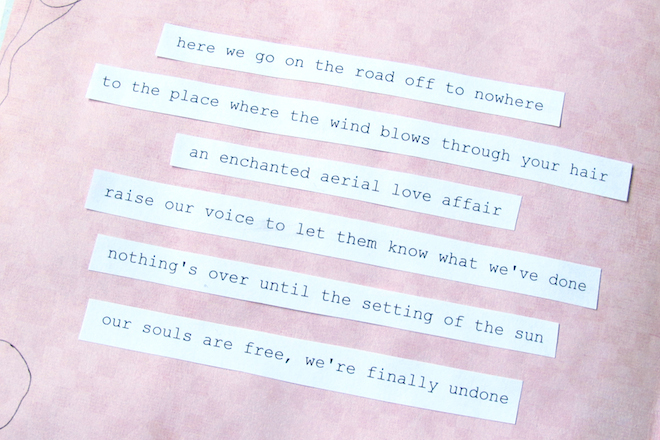 here we go on the road off to nowhere
to the place where the wind blows through your hair
an enchanted aerial love affair
raise our voice to let them know what we've done
nothing's over until the setting of the sun
our souls are free, we're finally undone